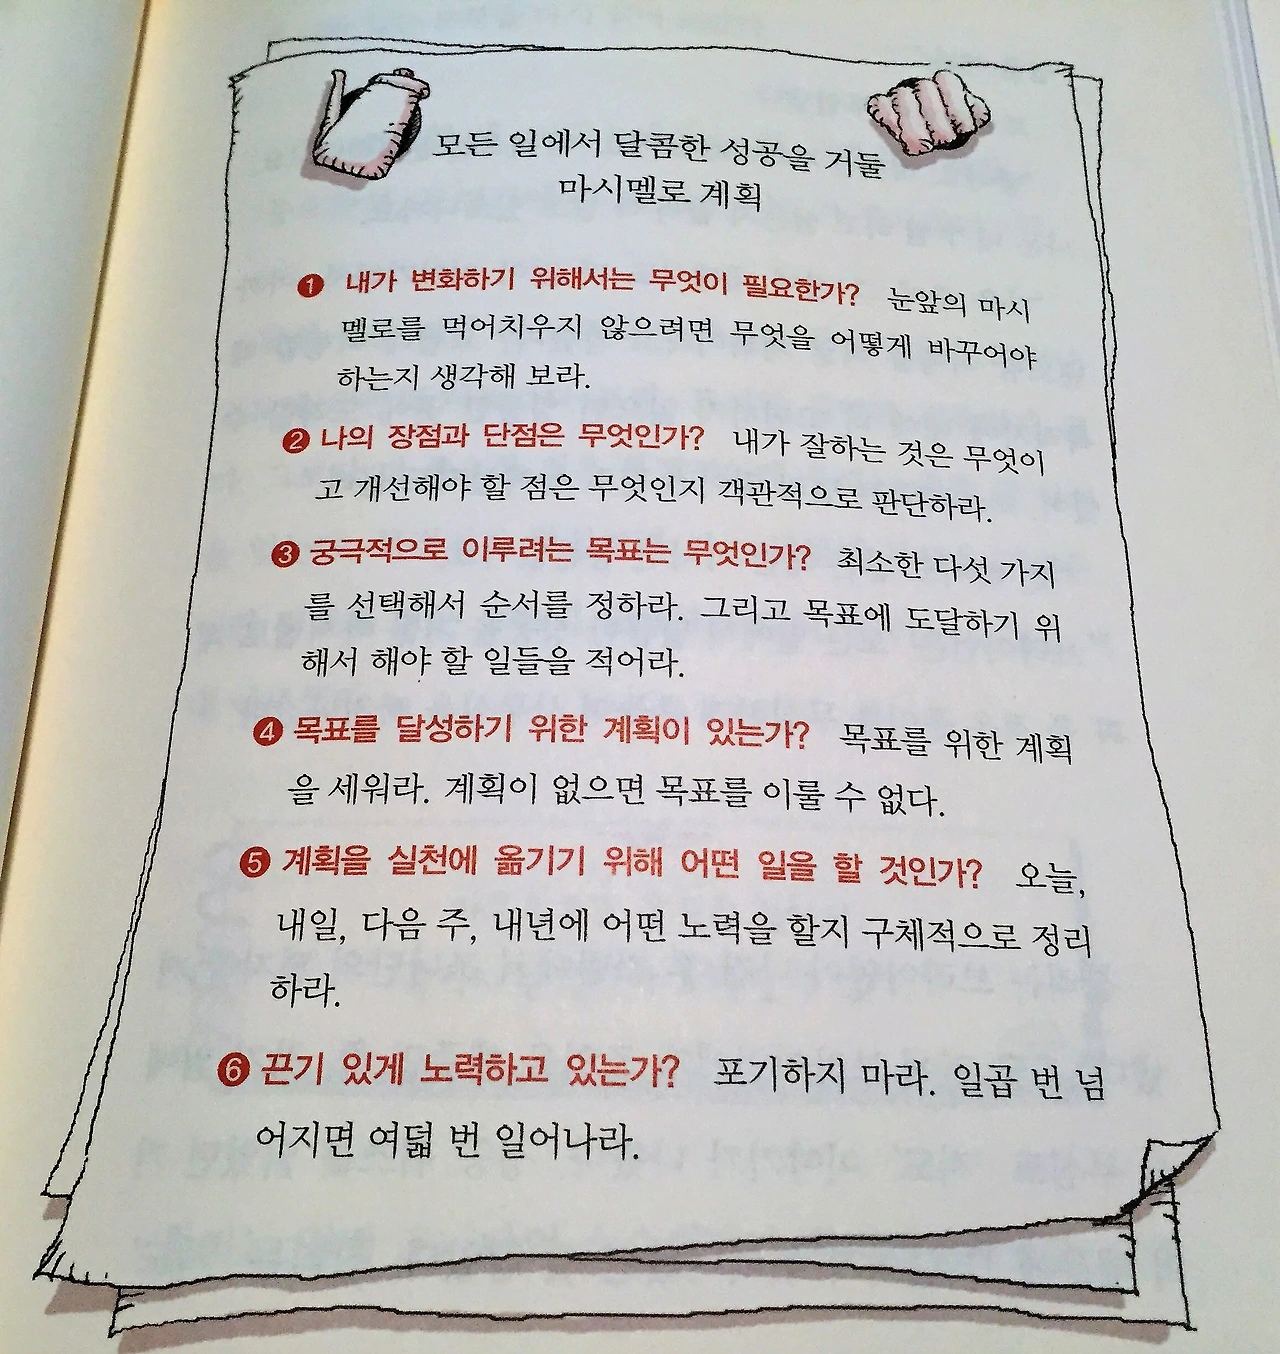 모든 일에서 달콤한 성공을 거둘
마시멜로 계획
❶ 내가 변화하기 위해서는 무엇이 필요한가? 눈앞의 마시
멜로를 먹어치우지 않으려면 무엇을 어떻게 바꾸어야
하는지 생각해 보라.
❷ 나의 장점과 단점은 무엇인가? 내가 잘하는 것은 무엇이
고 개선해야 할 점은 무엇인지 객관적으로 판단하라.
❸ 궁극적으로 이루려는 목표는 무엇인가? 최소한 다섯 가지
를 선택해서 순서를 정하라. 그리고 목표에 도달하기 위
해서 해야 할 일들을 적어라.
❹ 목표를 달성하기 위한 계획이 있는가? 목표를 위한 계획
을 세워라. 계획이 없으면 목표를 이룰 수 없다.
❺ 계획을 실천에 옮기기 위해 어떤 일을 할 것인가? 오늘,
내일, 다음 주, 내년에 어떤 노력을 할지 구체적으로 정리
하라.
❻ 끈기 있게 노력하고 있는가? 포기하지 마라. 일곱 번 넘
어지면 여덟 번 일어나라.